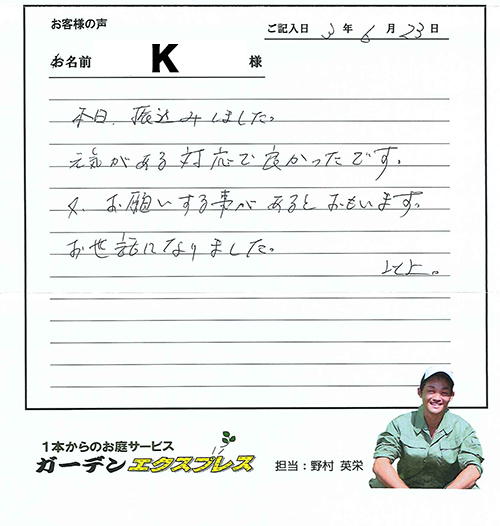 お客様の声
ご記入日 3年6月23日
お名前 K 様
本日、振込みしました。
元気がある対応で良かったです。
又、お願いする事があるとおもいます。
お世話になりました。
以上。
1本からのお庭サービス
ガーデンエクスプレス
担当:野村 英栄